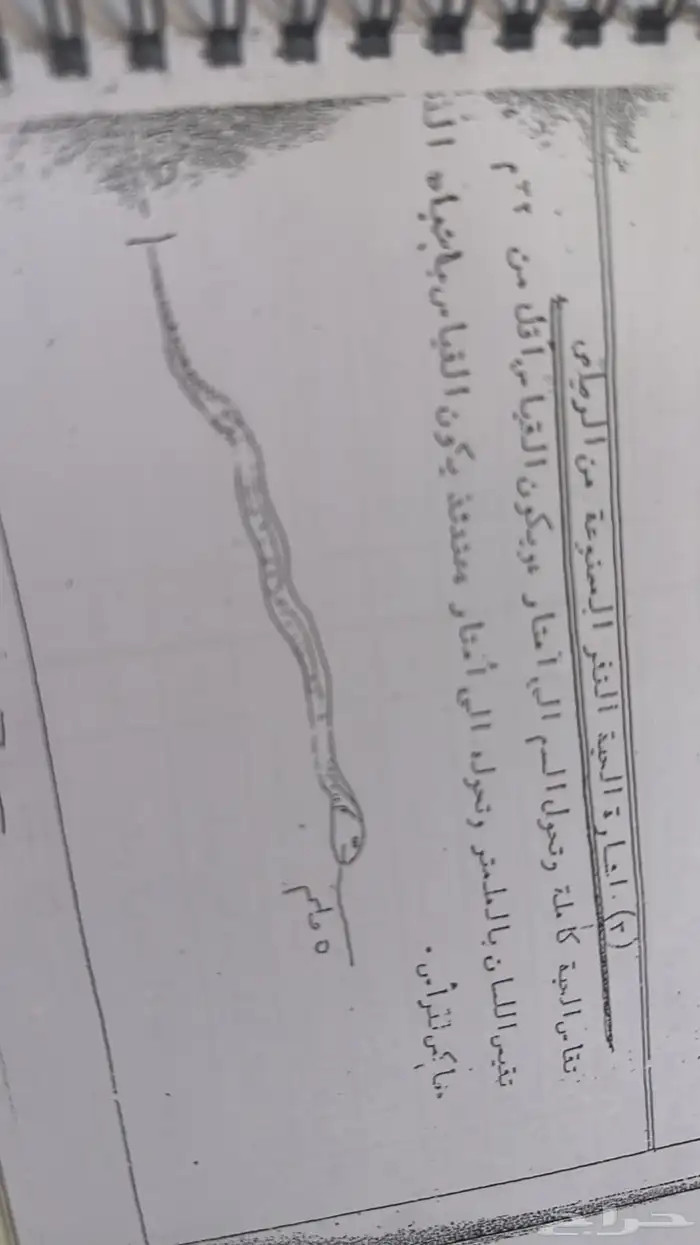 (٢) . اشارة الحية النفر المصنوعة من الرصاص
تقاس الحية كاملة وتحول السم الى امتار ويكون القياس اقل من ٣٢م
تقيس اللسان بالملمتر وتحوله الى أمتار عندئذ يكون القياس باتجاه
الرأس .
٥ ملم
حراج